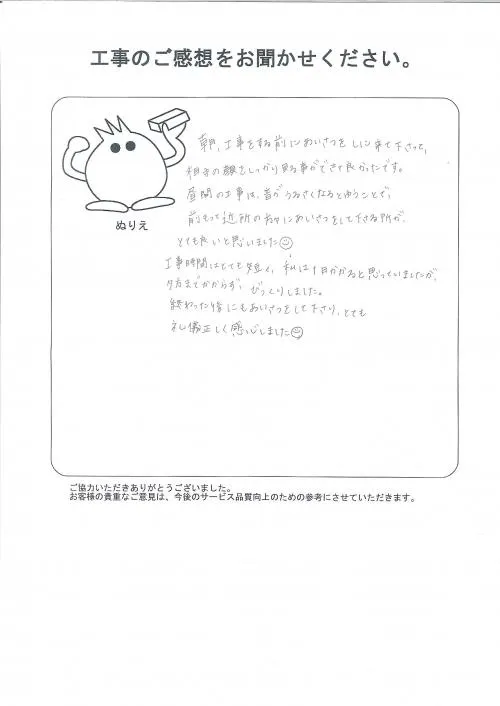 工事のご感想をお聞かせください。
朝、工事をする前にあいさつをしに来て下さって、
相手の顔をしっかり見る事ができて良かったです。
昼間の工事は、音がうるさくなるとゆうことで、
前もって近所の方々にあいさつをして下さる所が、
とても良いと思いました
ぬりえ
工事時間はとても短く、私は1日かかると思っていましたが、
夕方までかからず、びっくりしました。
終わった後にもあいさつをして下さり、とても
礼儀正しく感じました
ご協力いただきありがとうございました。
お客様の貴重なご意見は、今後のサービス品質向上のための参考にさせていただきます。